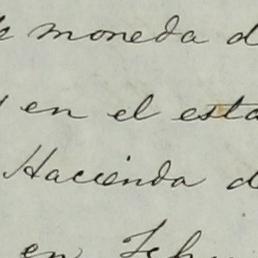 de moneda d
en el esta
Hacienda d
en